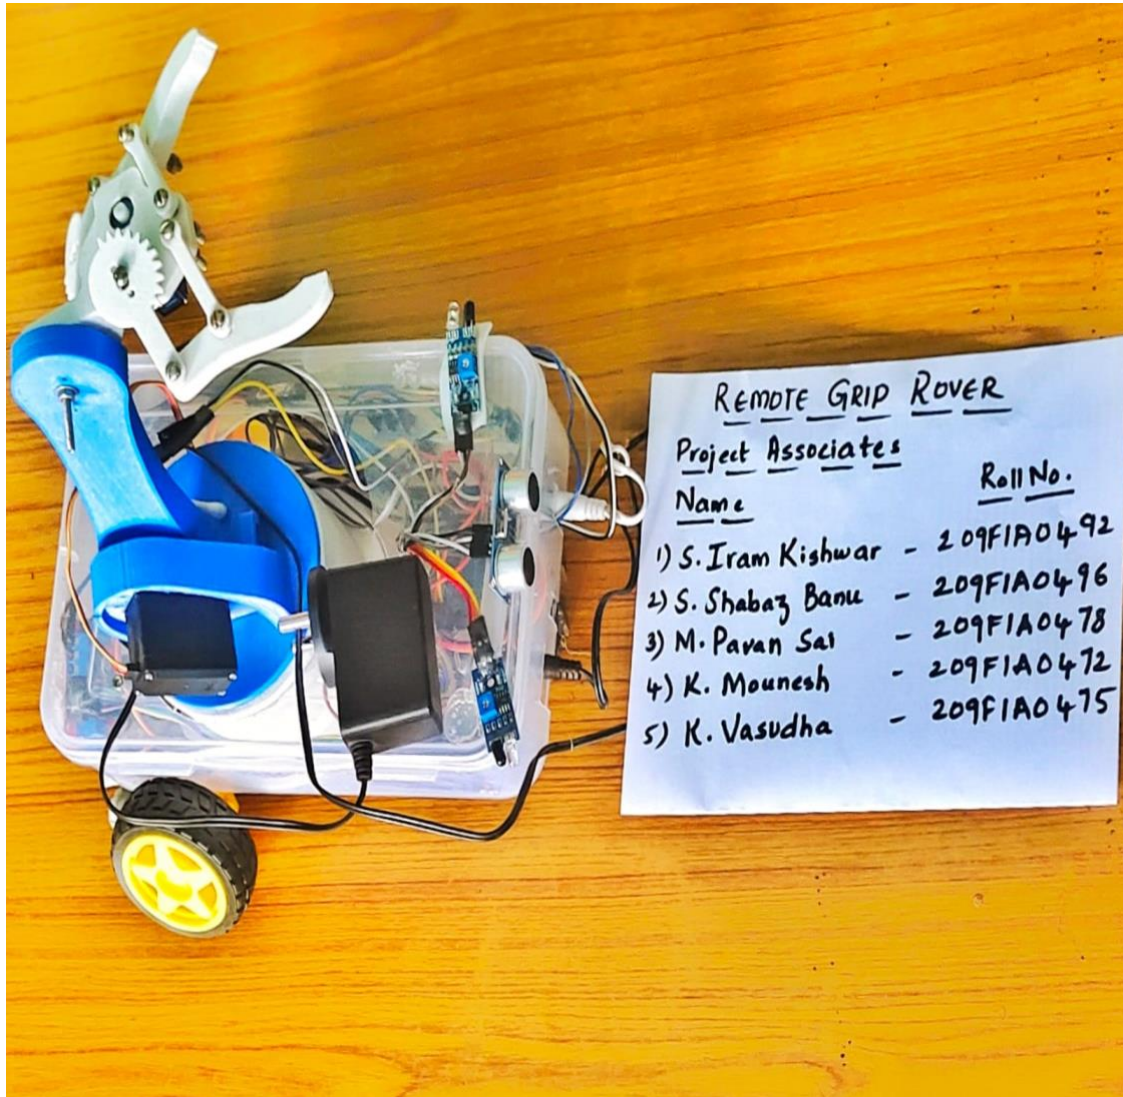 REMOTE GRIP ROVER
Project Associates
Name Roll No.
1) S. Iram Kishwar - 209F1A0492
2) S. Shabaz Banu - 209F1A0496
3) M. Pavan Sai - 209F1A0478
4) K. Mounesh - 209F1A0472
5) K. Vasudha - 209F1A0475